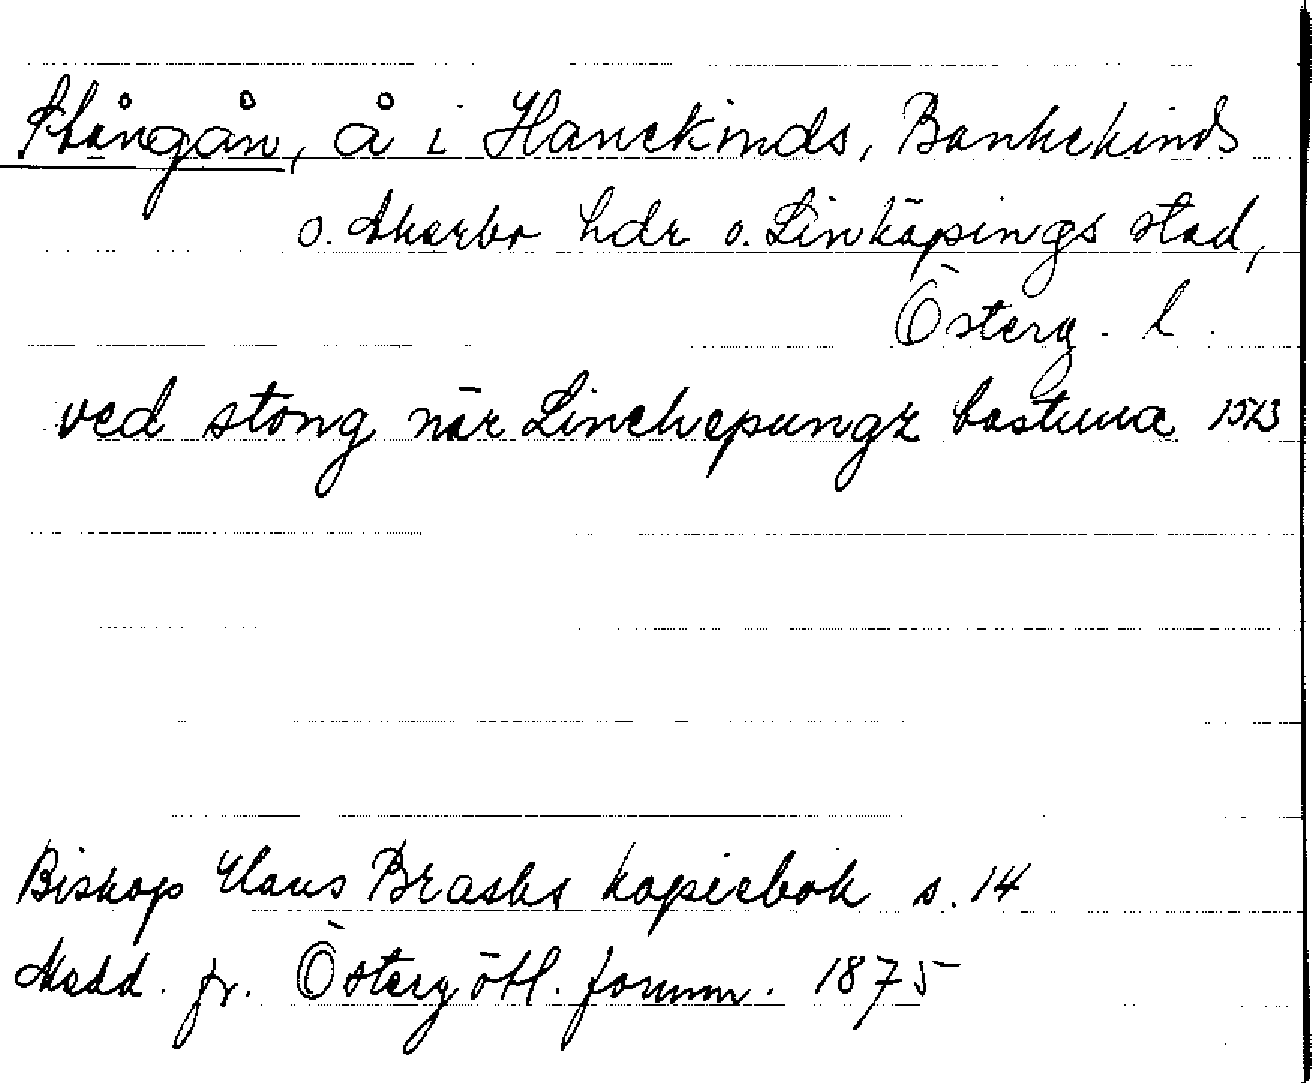 Stångån, å i Hanekinds, Bankekinds
o. Åkerbo hdr o. Linköpings stad,
Österg. l.
ved stong när Linchepungz bastuua 1523
Biskop Hans Brasks kopiebok s. 14
Medd. fr. Östergötl. fornm. 1875